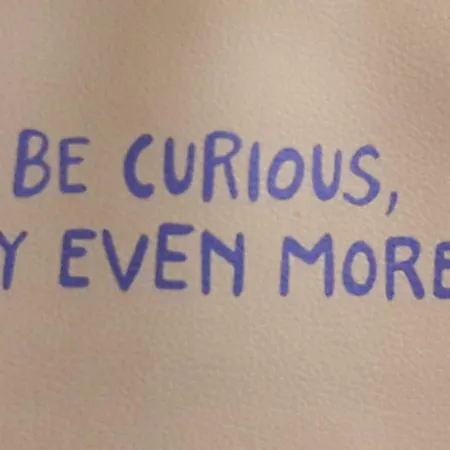 BE CURIOUS,
Y EVEN MORE